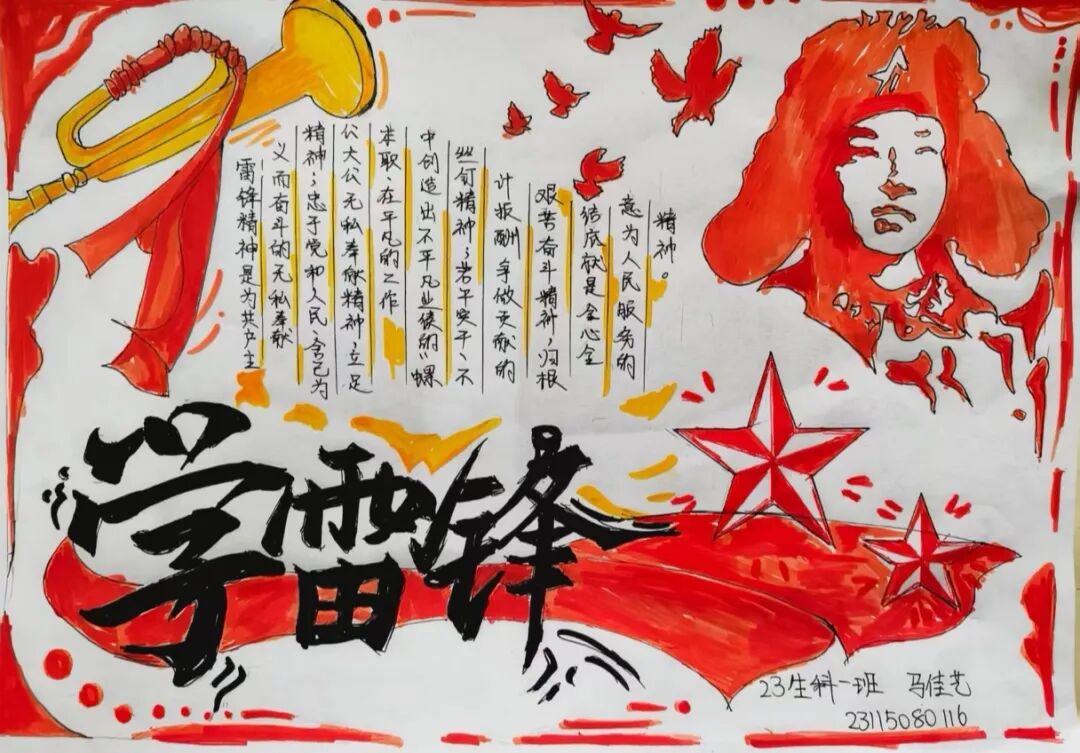 雷锋精神是为共产主
义而奋斗的无私奉献
精神；忠于党和人民、舍己为
公大公无私奉献精神；立足
本职、在平凡的工作
中创造出不平凡业绩的“螺
丝钉精神；苦干实干、不
计报酬、争做贡献的
艰苦奋斗精神，归根
结底就是全心全
意为人民服务的
精神。
学雷锋
23生科一班 马佳艺
23115080116